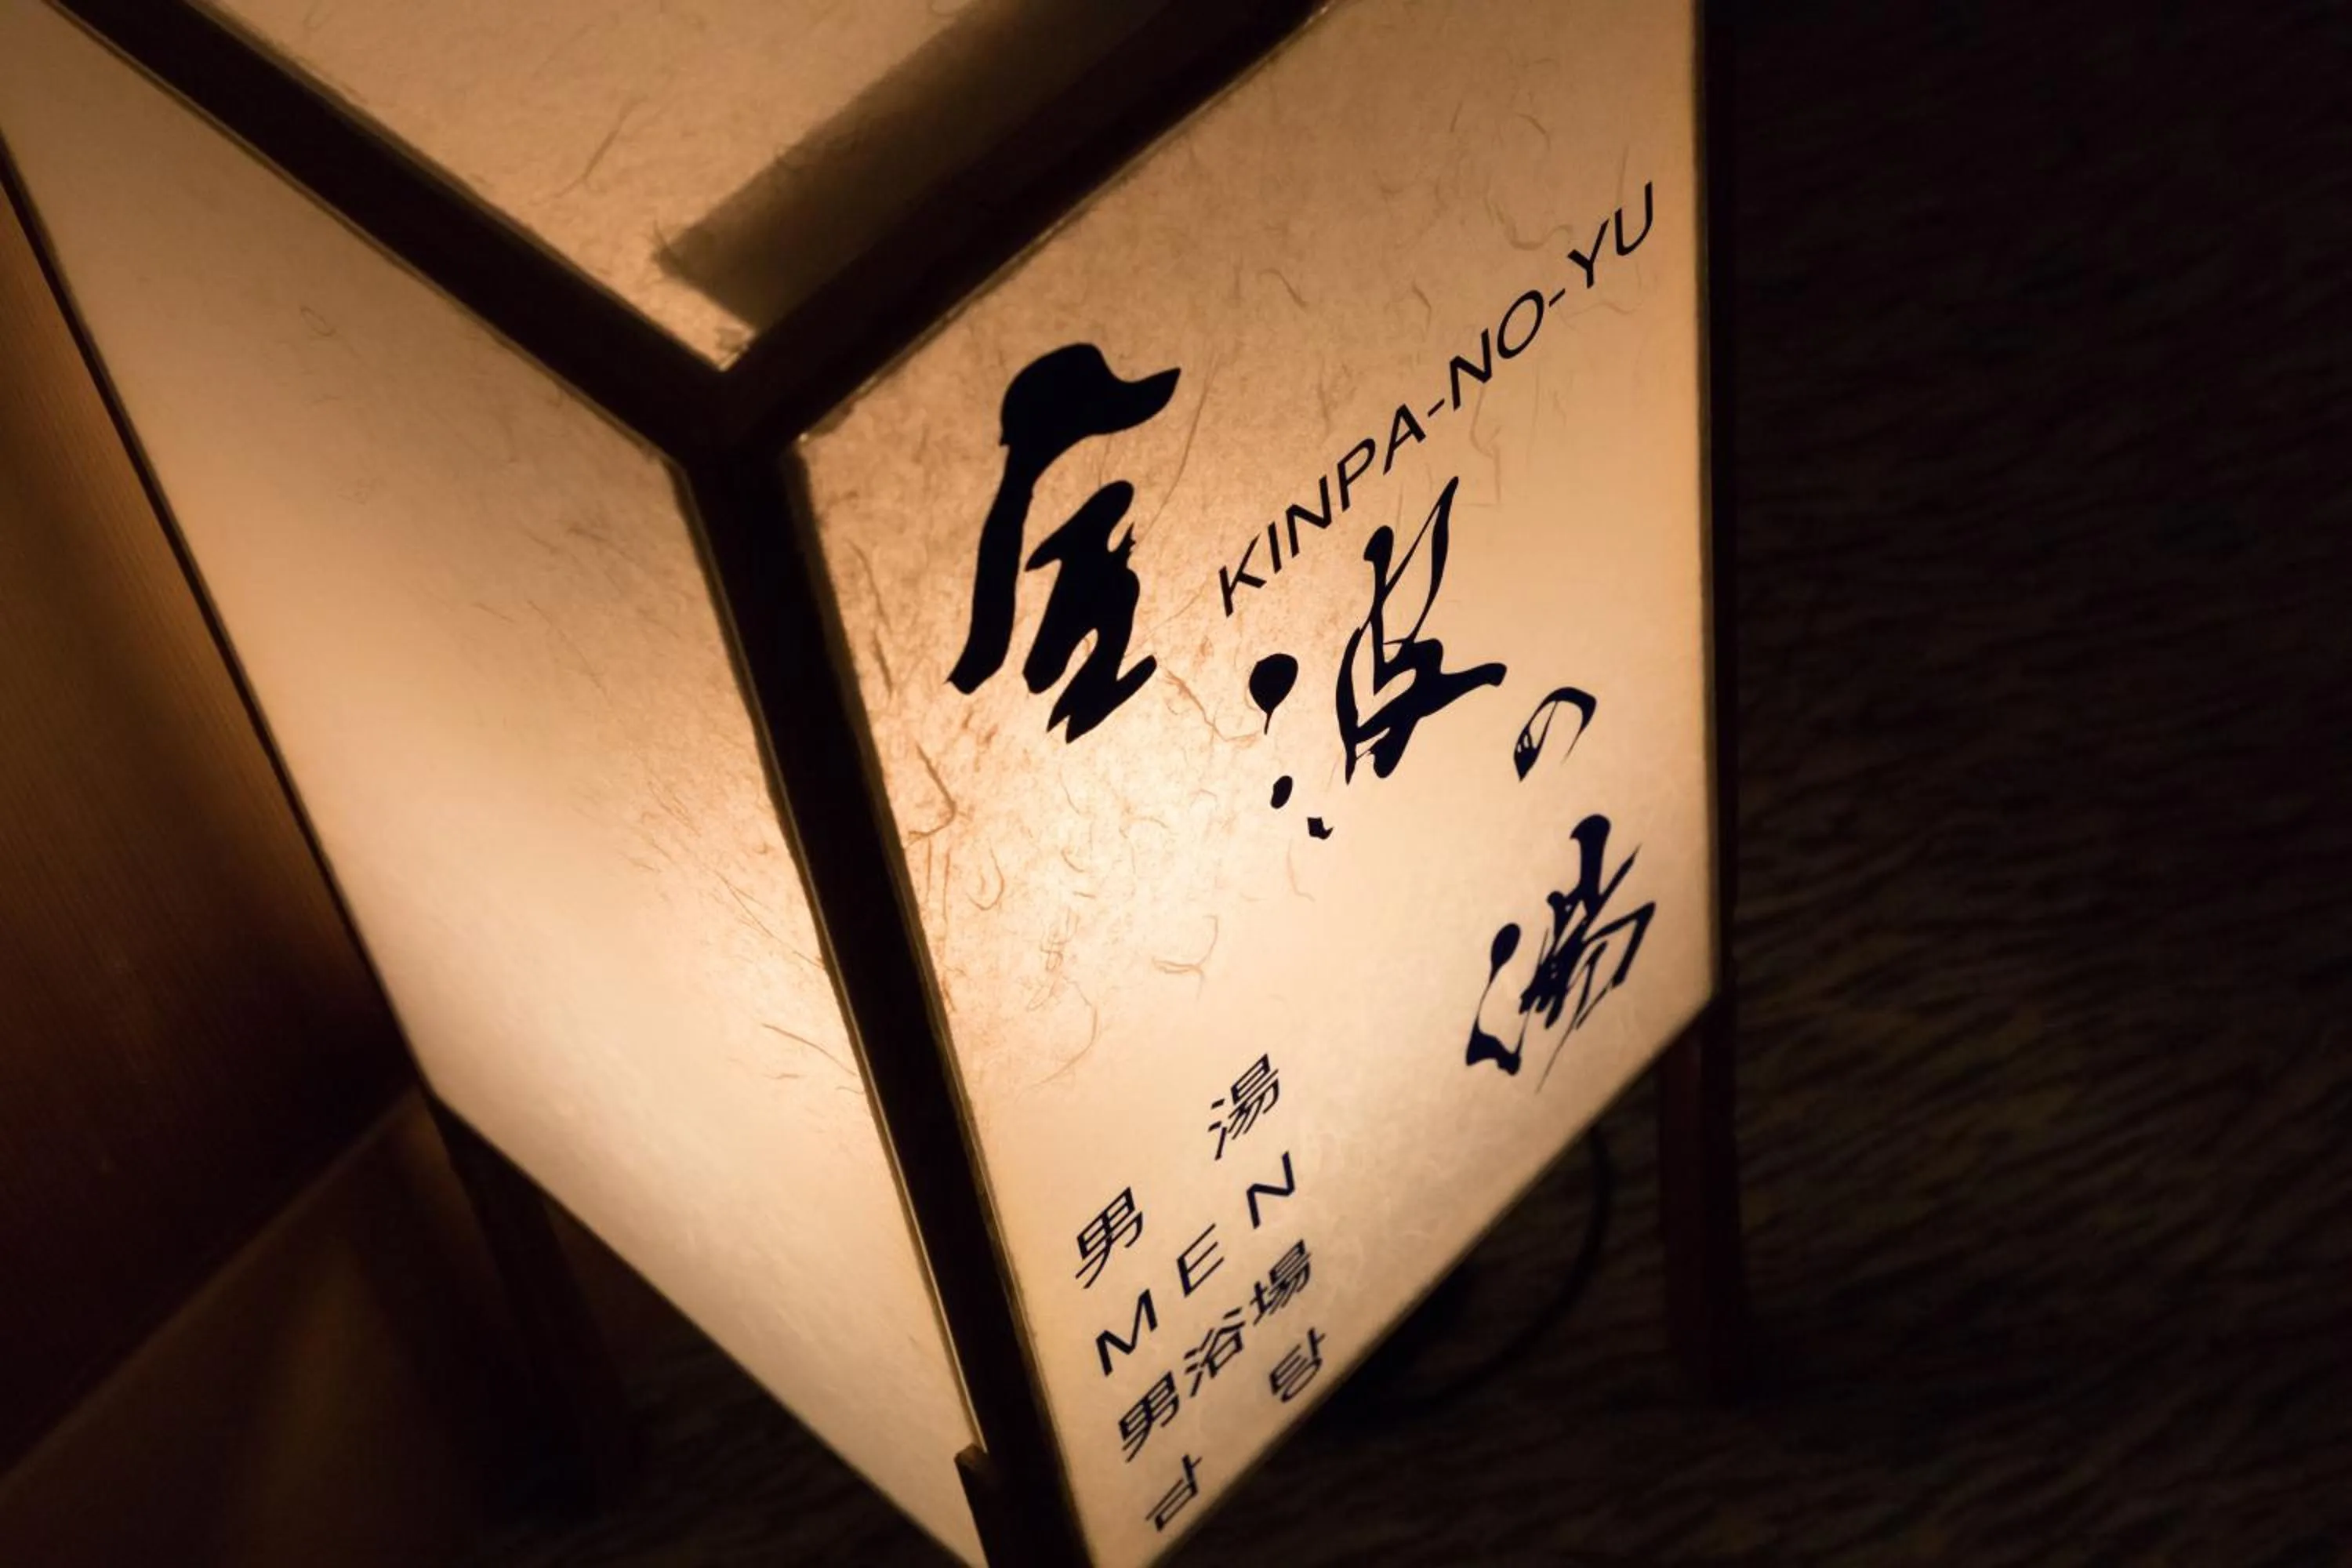 KINPA-NO-YU
金波の湯
男 湯
MEN
男浴場
남 탕